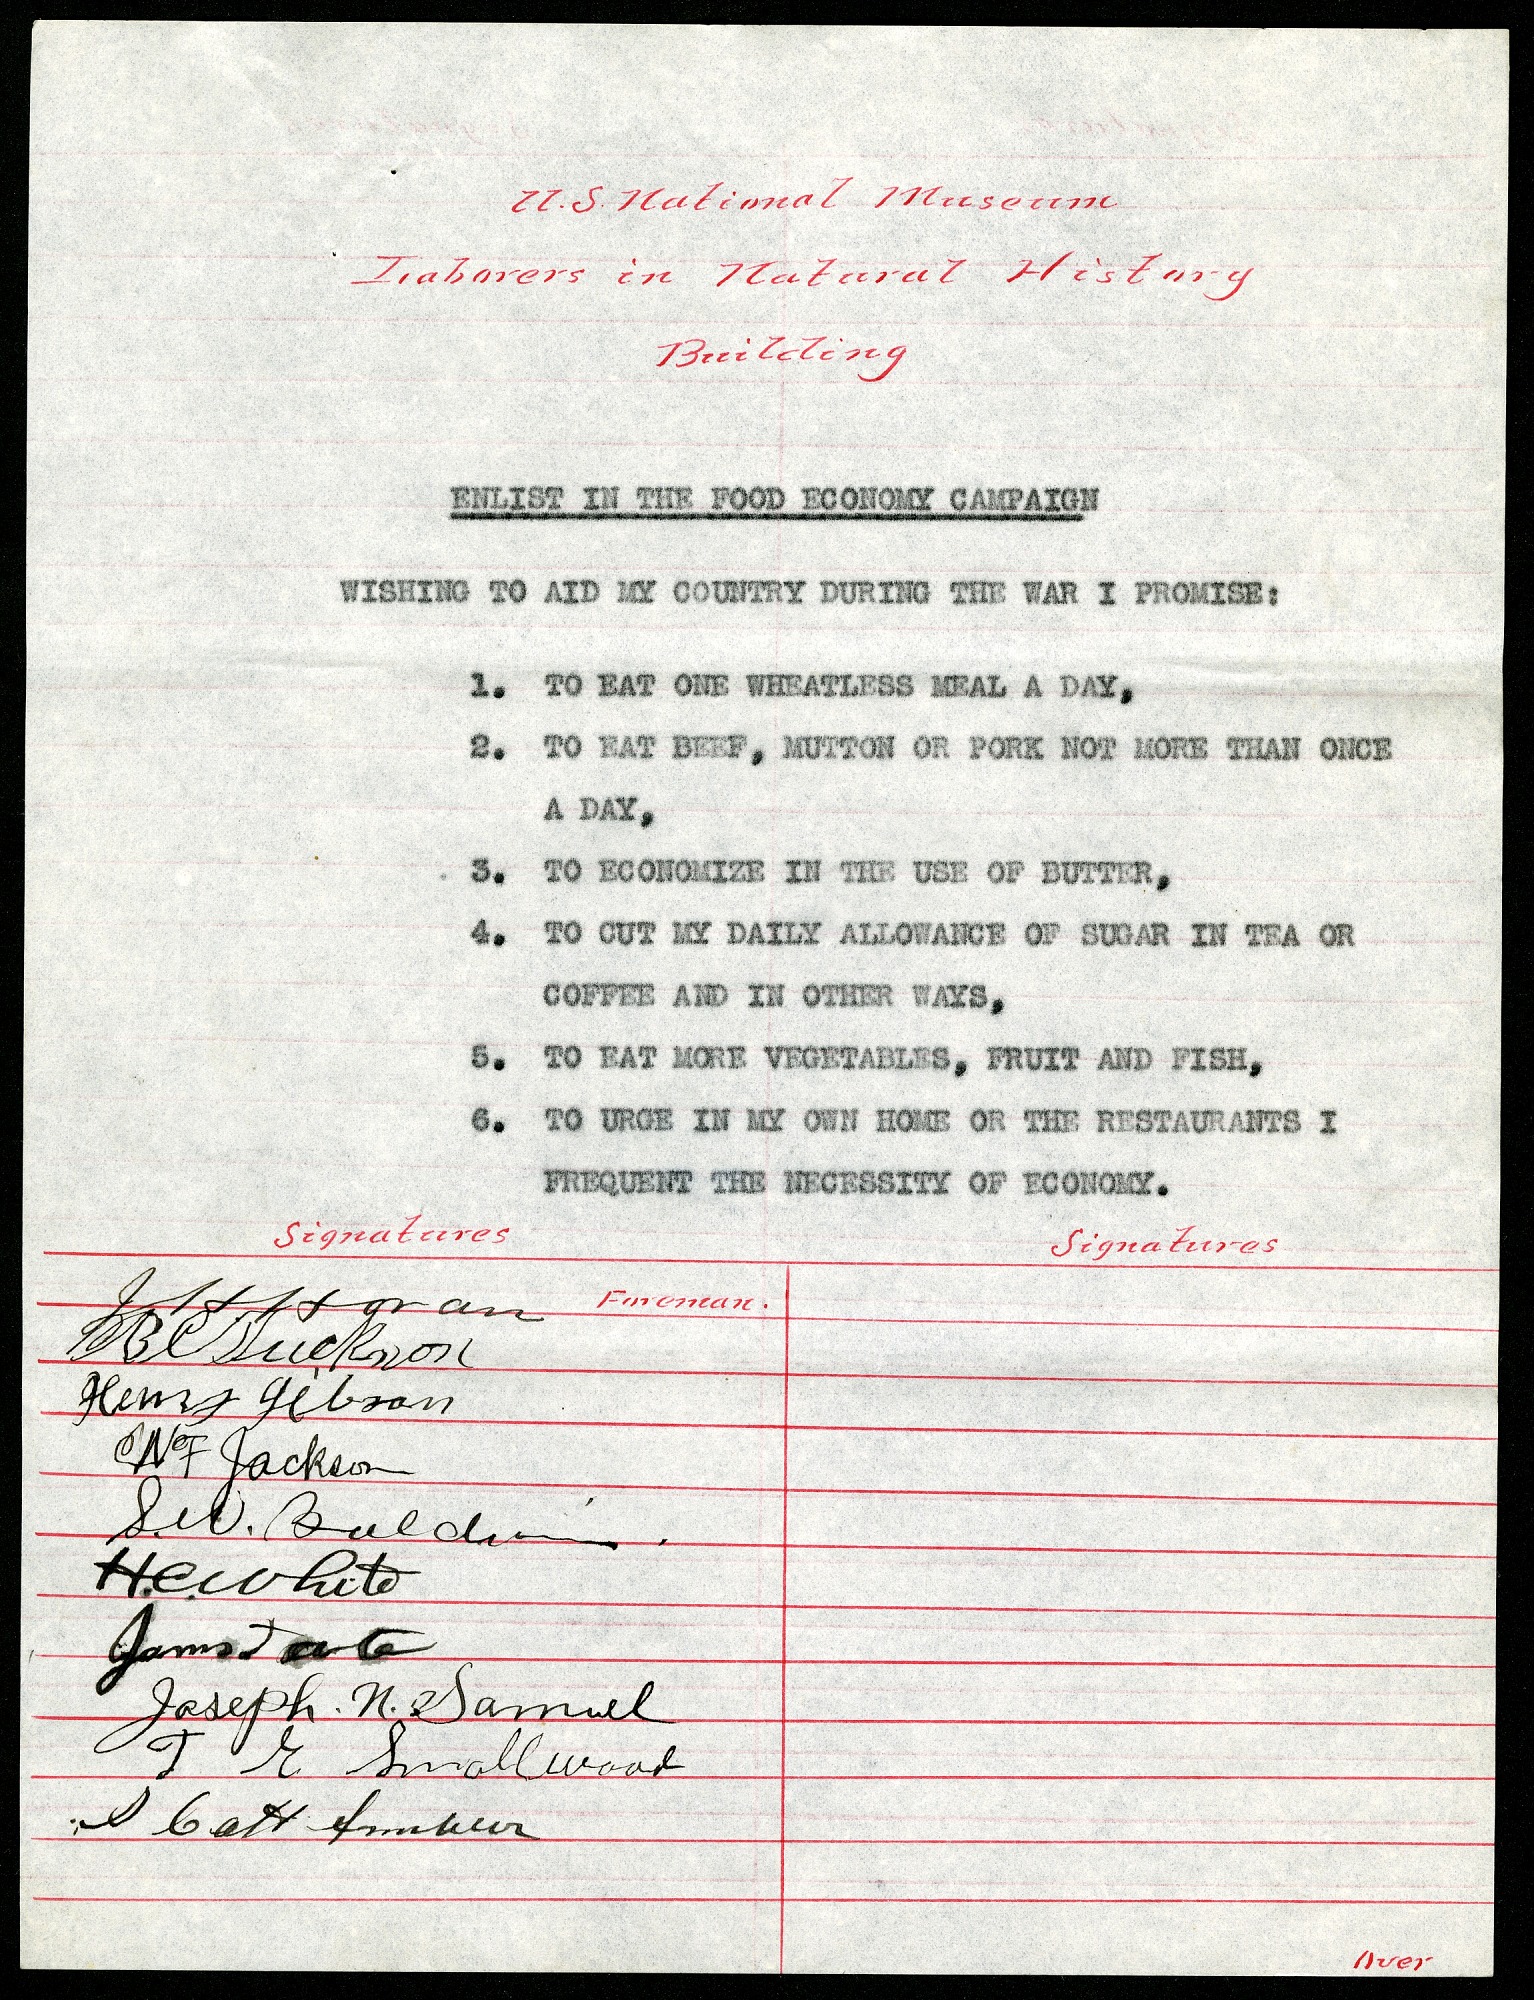 U.S. National Museum
Laborers in Natural History
Building
ENLIST IN THE FOOD ECONOMY CAMPAIGN
WISHING TO AID MY COUNTRY DURING THE WAR I PROMISE:
1. TO EAT ONE WHEATLESS MEAL A DAY,
2. TO EAT BEEF, MUTTON OR PORK NOT MORE THAN ONCE
A DAY,
3. TO ECONOMIZE IN THE USE OF BUTTER,
4. TO CUT MY DAILY ALLOWANCE OF SUGAR IN TEA OR
COFFEE AND IN OTHER WAYS,
5. TO EAT MORE VEGETABLES, FRUIT AND FISH,
6. TO URGE IN MY OWN HOME OR THE RESTAURANTS I
FREQUENT THE NECESSITY OF ECONOMY.
Signatures Signatures
Foreman.
Henry Gibson
Jackson
S.W. Baldwin.
H.C. White
Joseph. N. Samuel
T E Smallwood
Over